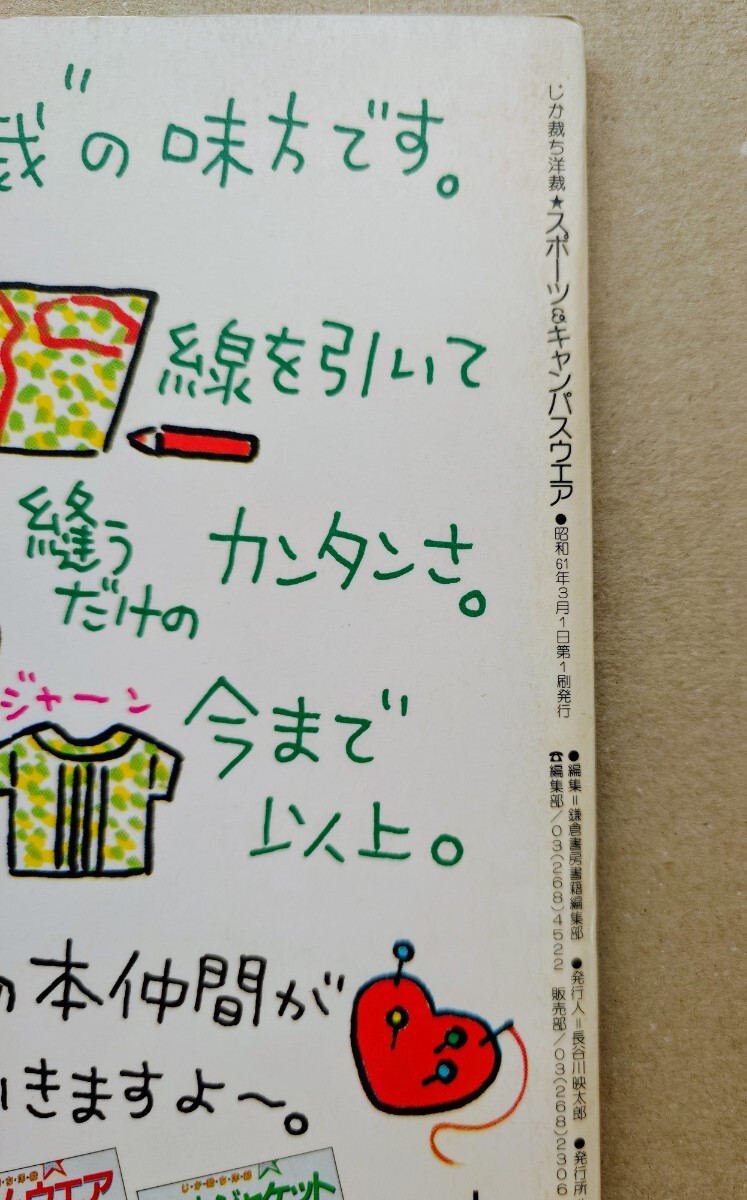 裁"の味方です。
線を引いて
縫う
だけの
カンタンさ。
ジャーン
今まで
以上。
の本仲間が
いきますよ〜。
じか裁ち洋裁
ウエア
じか裁ち洋裁
ジャケット
じか裁ち洋裁★スポーツ&キャンパスウエア●昭和61年3月1日第1刷発行
●編集=鎌倉書房書籍編集部 ●発行人=長谷川映太郎 ●発行所
☎編集部/03(268)4522 販売部/03(268)2306